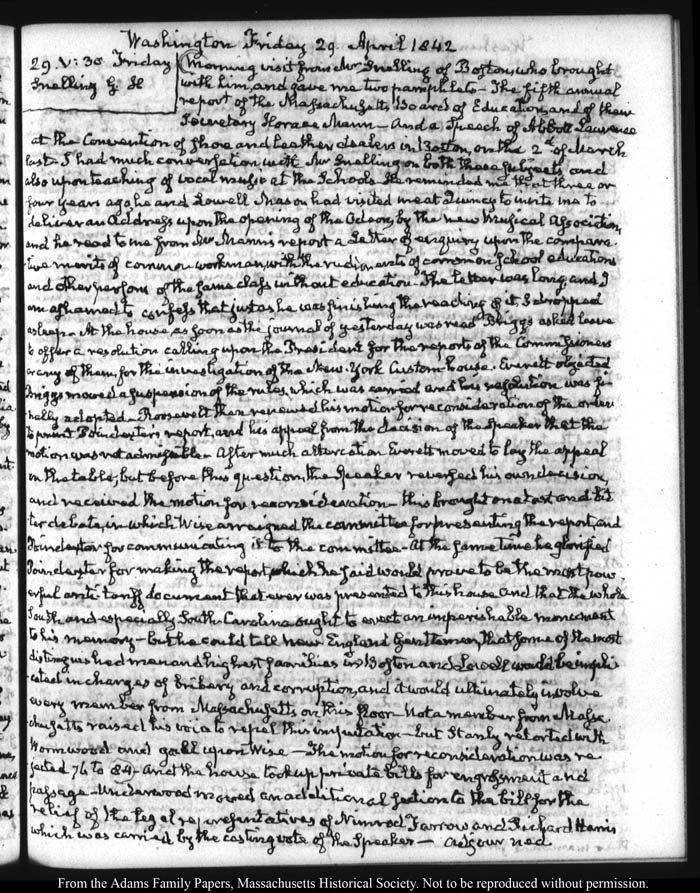 Washington Friday 29. April 1842
29. V:30 Friday
Snelling G. H
Morning visit from Mr Snelling of Boston, who brought
with him, and gave me two pamphlets – The fifth annual
report of the Massachusetts Board of Education, and of their
Secretary Horace Mann – And a Speech of Abbott Lawrence
at the Convention of Shoe and Leather dealers in Boston, on the 2d of March
last. I had much conversation with Mr Snelling on both these subjects, and
also upon teaching of vocal music at the Schools. He reminded me that three or
four years ago he and Lowell Mason had visited me at Quincy to invite me to
deliver an Address upon the opening of the Odeon, by the new Musical Association,
and he read to me from Mr Mann's report a Letter of enquiry upon the compara-
tive merits of common workmen, with the rudiments of common School education
and other persons of the same class without education. The letter was long, and I
am ashamed to confess that just as he was finishing the reading of it, I dropped
asleep – At the house, as soon as the journal of yesterday was read Briggs asked leave
to offer a resolution calling upon the President for the reports of the Commissioners
or any of them, for the investigation of the New-York Custom-house. Everett objected
Briggs moved a suspension of the rules, which was carried and his resolution was fi-
nally adopted – Roosevelt then renewed his motion for reconsideration of the order
to print Poindexter's report, and his appeal from the decision of the Speaker that the
motion was not admissible – After much altercation Everett moved to lay the appeal
on the table, but before this question, the Speaker reversed his own decision,
and received the motion for reconsideration – this brought on a last and bit-
ter debate, in which Wise arraigned the committee for presenting the report, and
Poindexter for communicating it to the committee – At the same time he glorified
Poindexter for making the report, which he said would prove to be the most pow-
erful anti-tariff document that ever was presented to this house and that the whole
South and especially South-Carolina ought to erect an imperishable monument
to his memory – but he could tell New England Gentlemen, that some of the most
distinguished men and highest families in Boston and Lowell would be impli-
cated in charges of bribery and corruption, and it would ultimately involve
every member from Massachusetts on this floor – Not a member from Massa-
chusetts raised his voice to repel this imputation – but Stanly retorted with
Wormwood and gall upon Wise – The motion for reconsideration was re-
jected 76 to 84 – and the house took up private bills for engrossment and
passage – Underwood moved an additional section to the bill for the
relief of the legal representatives of Nimrod Farrow and Richard Harris
which was carried by the casting vote of the Speaker – adjourned
From the Adams Family Papers, Massachusetts Historical Society. Not to be reproduced without permission.